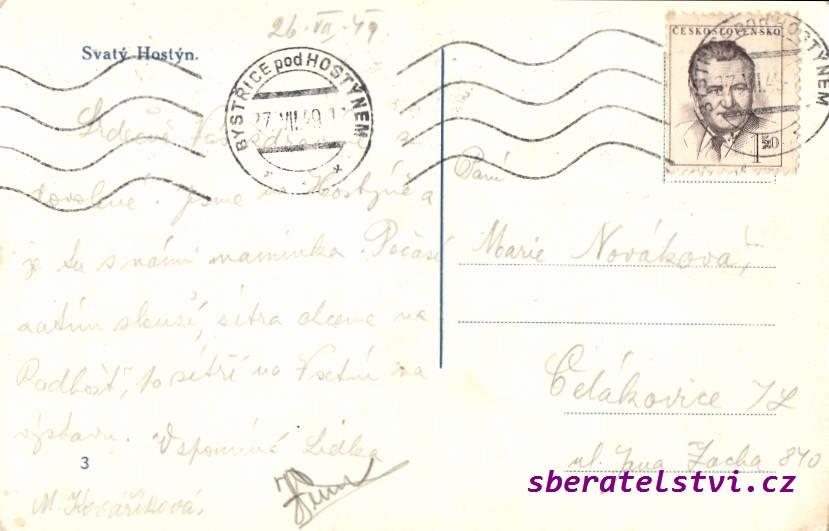 26.VII.49
Svatý Hostýn.
BYSTŘICE pod HOSTÝNEM
27.VII.49
ČESKOSLOVENSKO
1.50
Srdečně Vás z
dovolené. Jsme na Hostýně a
je tu s námi maminka. Počasí
zatím slouží, zítra chceme na
Radhošť, pozítří na Vsetín na
výstavu. Vzpomíná Lidka
3
M. Kovaříková
Paní
Marie Nováková
Čelákovice
ul. Jana Zacha 840
sberatelstvi.cz